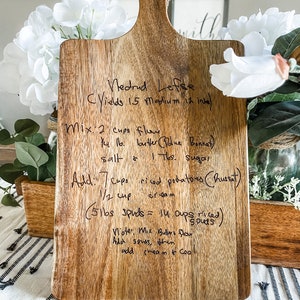 Nedrud Lefse
(Yields 15 medium
Mix 2 cups flour
1/4 lb. butter (Blue Bonnet)
salt & 1 Tbs. sugar
Add. 7 cups riced potatoes (Russet)
1/2 cup cream
(5lbs spuds = 14 cups riced
spuds)
Note: Mix Butter, flour
Add spuds, then
add cream & cool